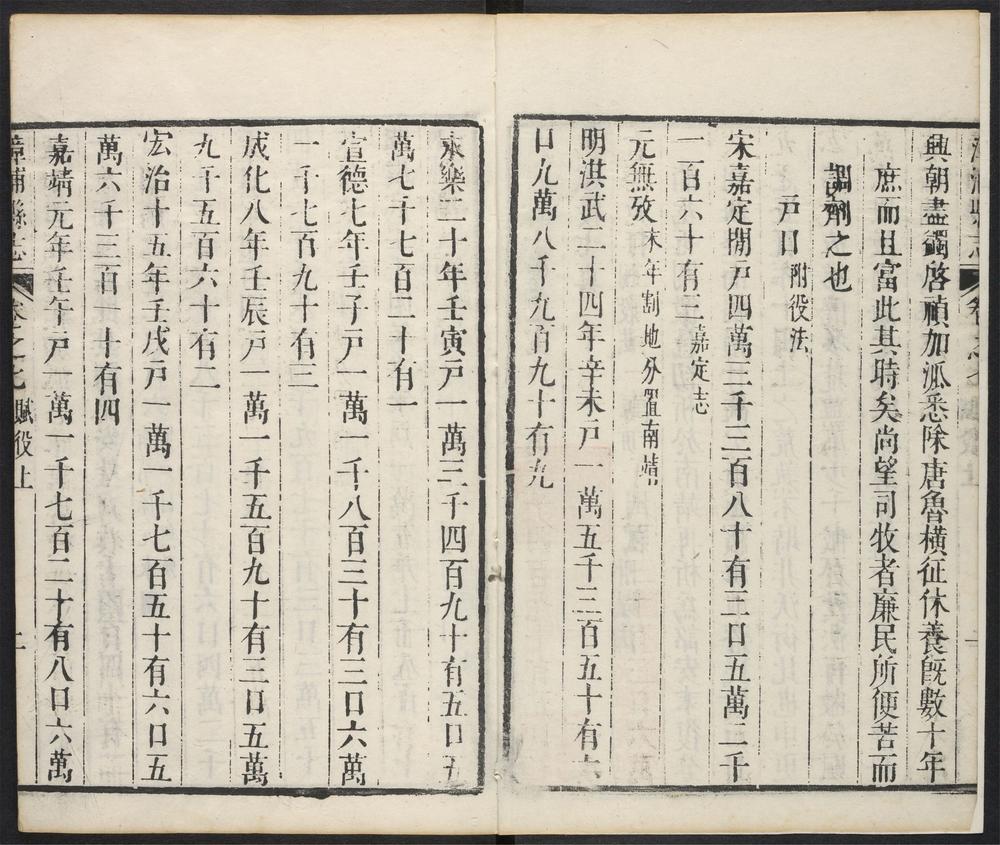 興朝盡蠲啓禎加派悉除唐魯橫征休養旣數十年
庶而且富此其時矣尚望司牧者廉民所便苦而
調劑之也
戸口附役法
宋嘉定閒戸四萬三千三百八十有三口五萬二千
一百六十有三嘉定志
元無攷末年割地分置南靖
明洪武二十四年辛未戸一萬五千三百五十有六
口九萬八千九百九十有九
永樂二十年壬寅戸一萬三千四百九十有五口五
萬七千七百二十有一
宣德七年壬子戸一萬一千八百三十有三口六萬
一千七百九十有三
成化八年壬辰戸一萬一千五百九十有三口五萬
九千五百六十有二
宏治十五年壬戌戸一萬一千七百五十有六口五
萬六千三百一十有四
嘉靖元年壬午戸一萬一千七百二十有八口六萬
漳浦縣志 卷之七 賦役上 二